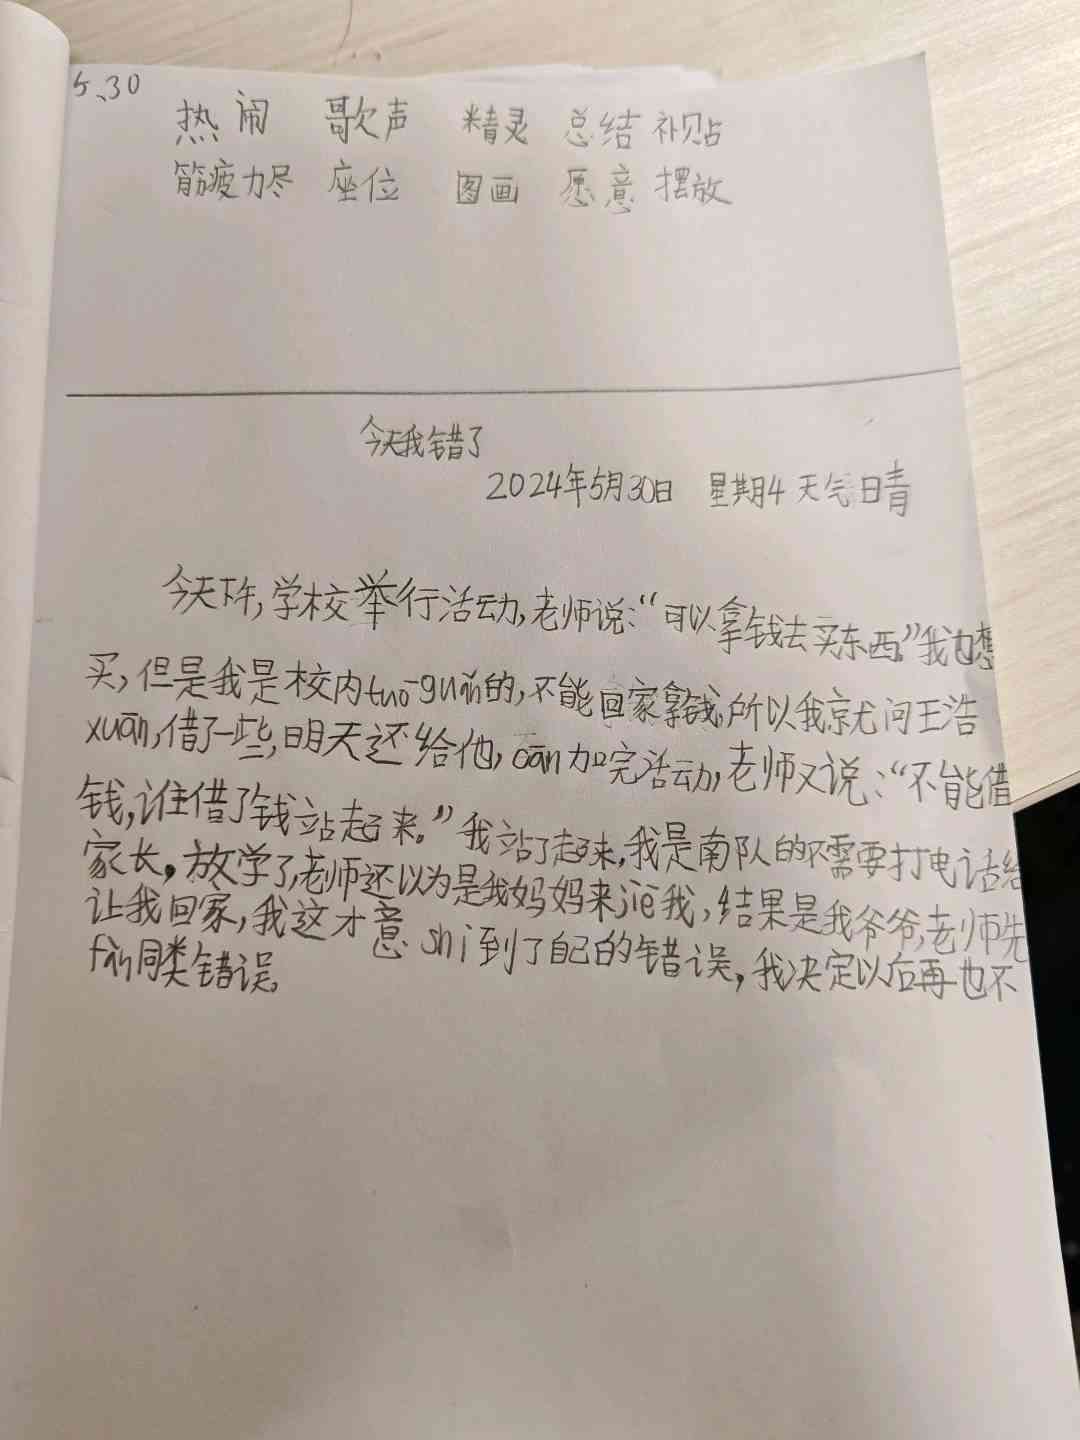 5、30
热闹 歌声 精灵 总结 补贴
筋疲力尽 座位 图画 愿意 摆放
今天我错了
2024年5月30日 星期4 天气晴
今天下午,学校举行活动,老师说:“可以拿钱去买东西。”我也想
买,但是我是校内tuō guǎn的,不能回家拿钱,所以我就问王浩
xuān,借了一些,明天还给他,cān加完活动,老师又说:“不能借
钱,谁借了钱站起来。”我站了起来,我是南队的不需要打电话给
家长。放学了,老师还以为是我妈妈来jiē我,结果是我爷爷,老师先
让我回家,我这才意shi到了自己的错误,我决定以后再也不
fàn同类错误。